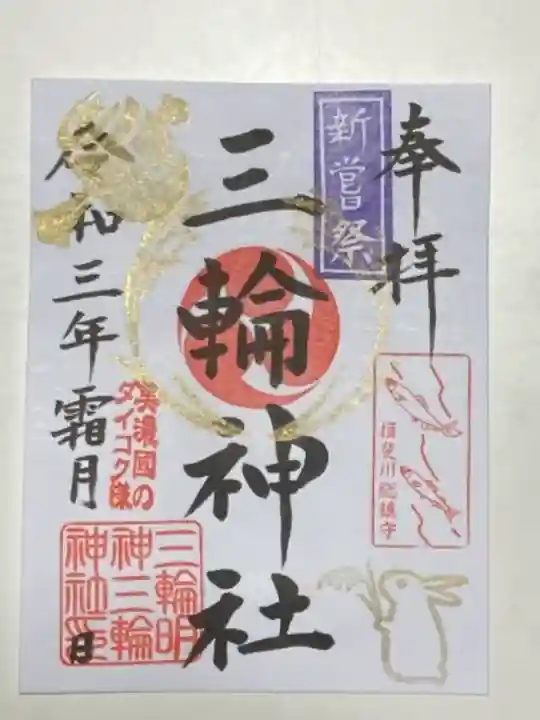 奉拝
新嘗祭
揖斐川総鎮守
三輪神社
美濃國の
ダイコク様
令和三年霜月
日
三輪明
神三輪
神社